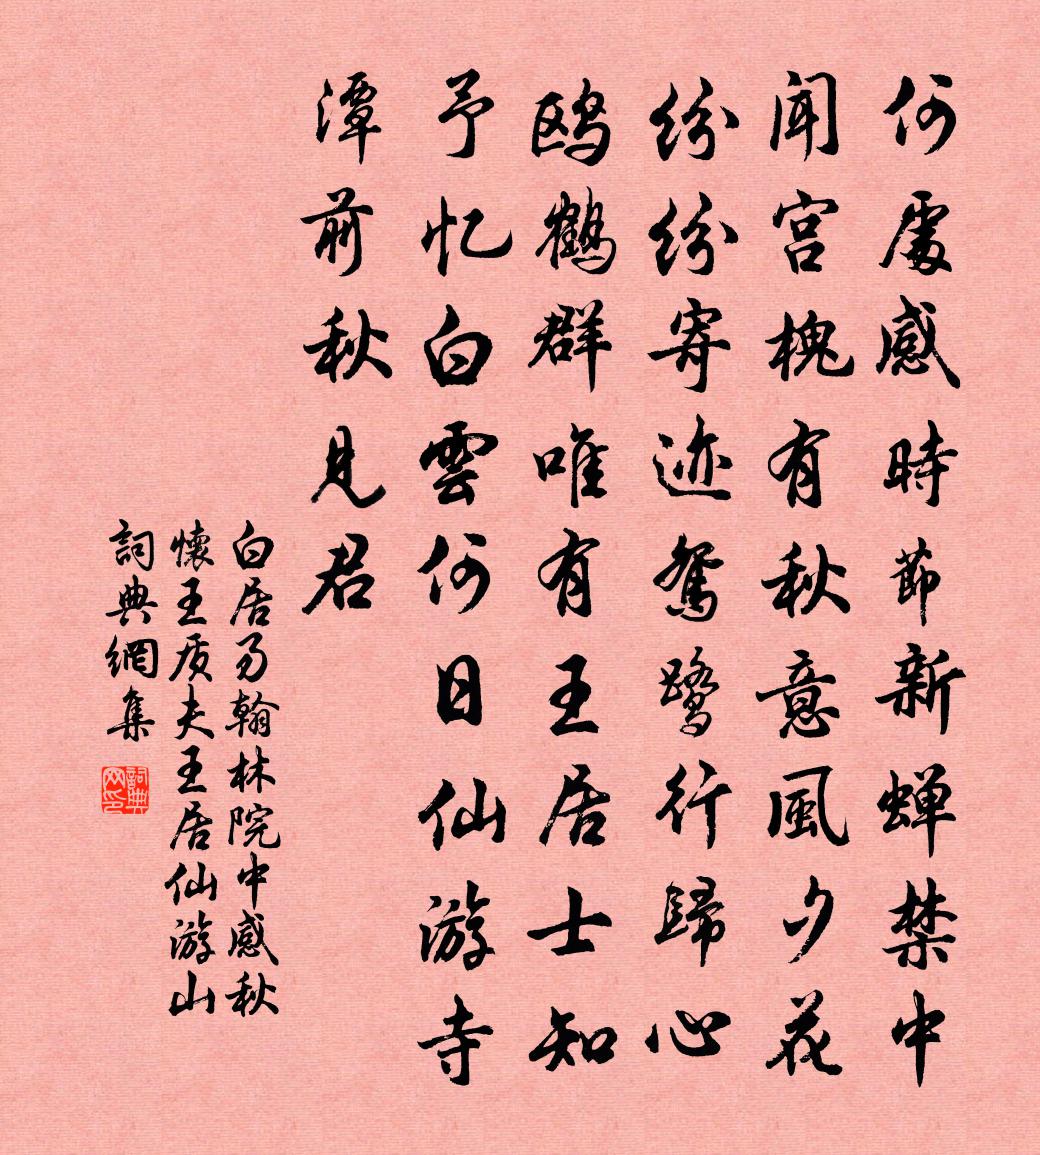 何處感時節新蟬禁中
闻宫槐有秋意風夕花
纷纷寄迹鸳鹭行歸心
鸥鹤群唯有王居士知
予忆白雲何日仙游寺
潭前秋見君
白居易翰林院中感秋
懷王质夫王居仙游山
詞典網集
詞典网印